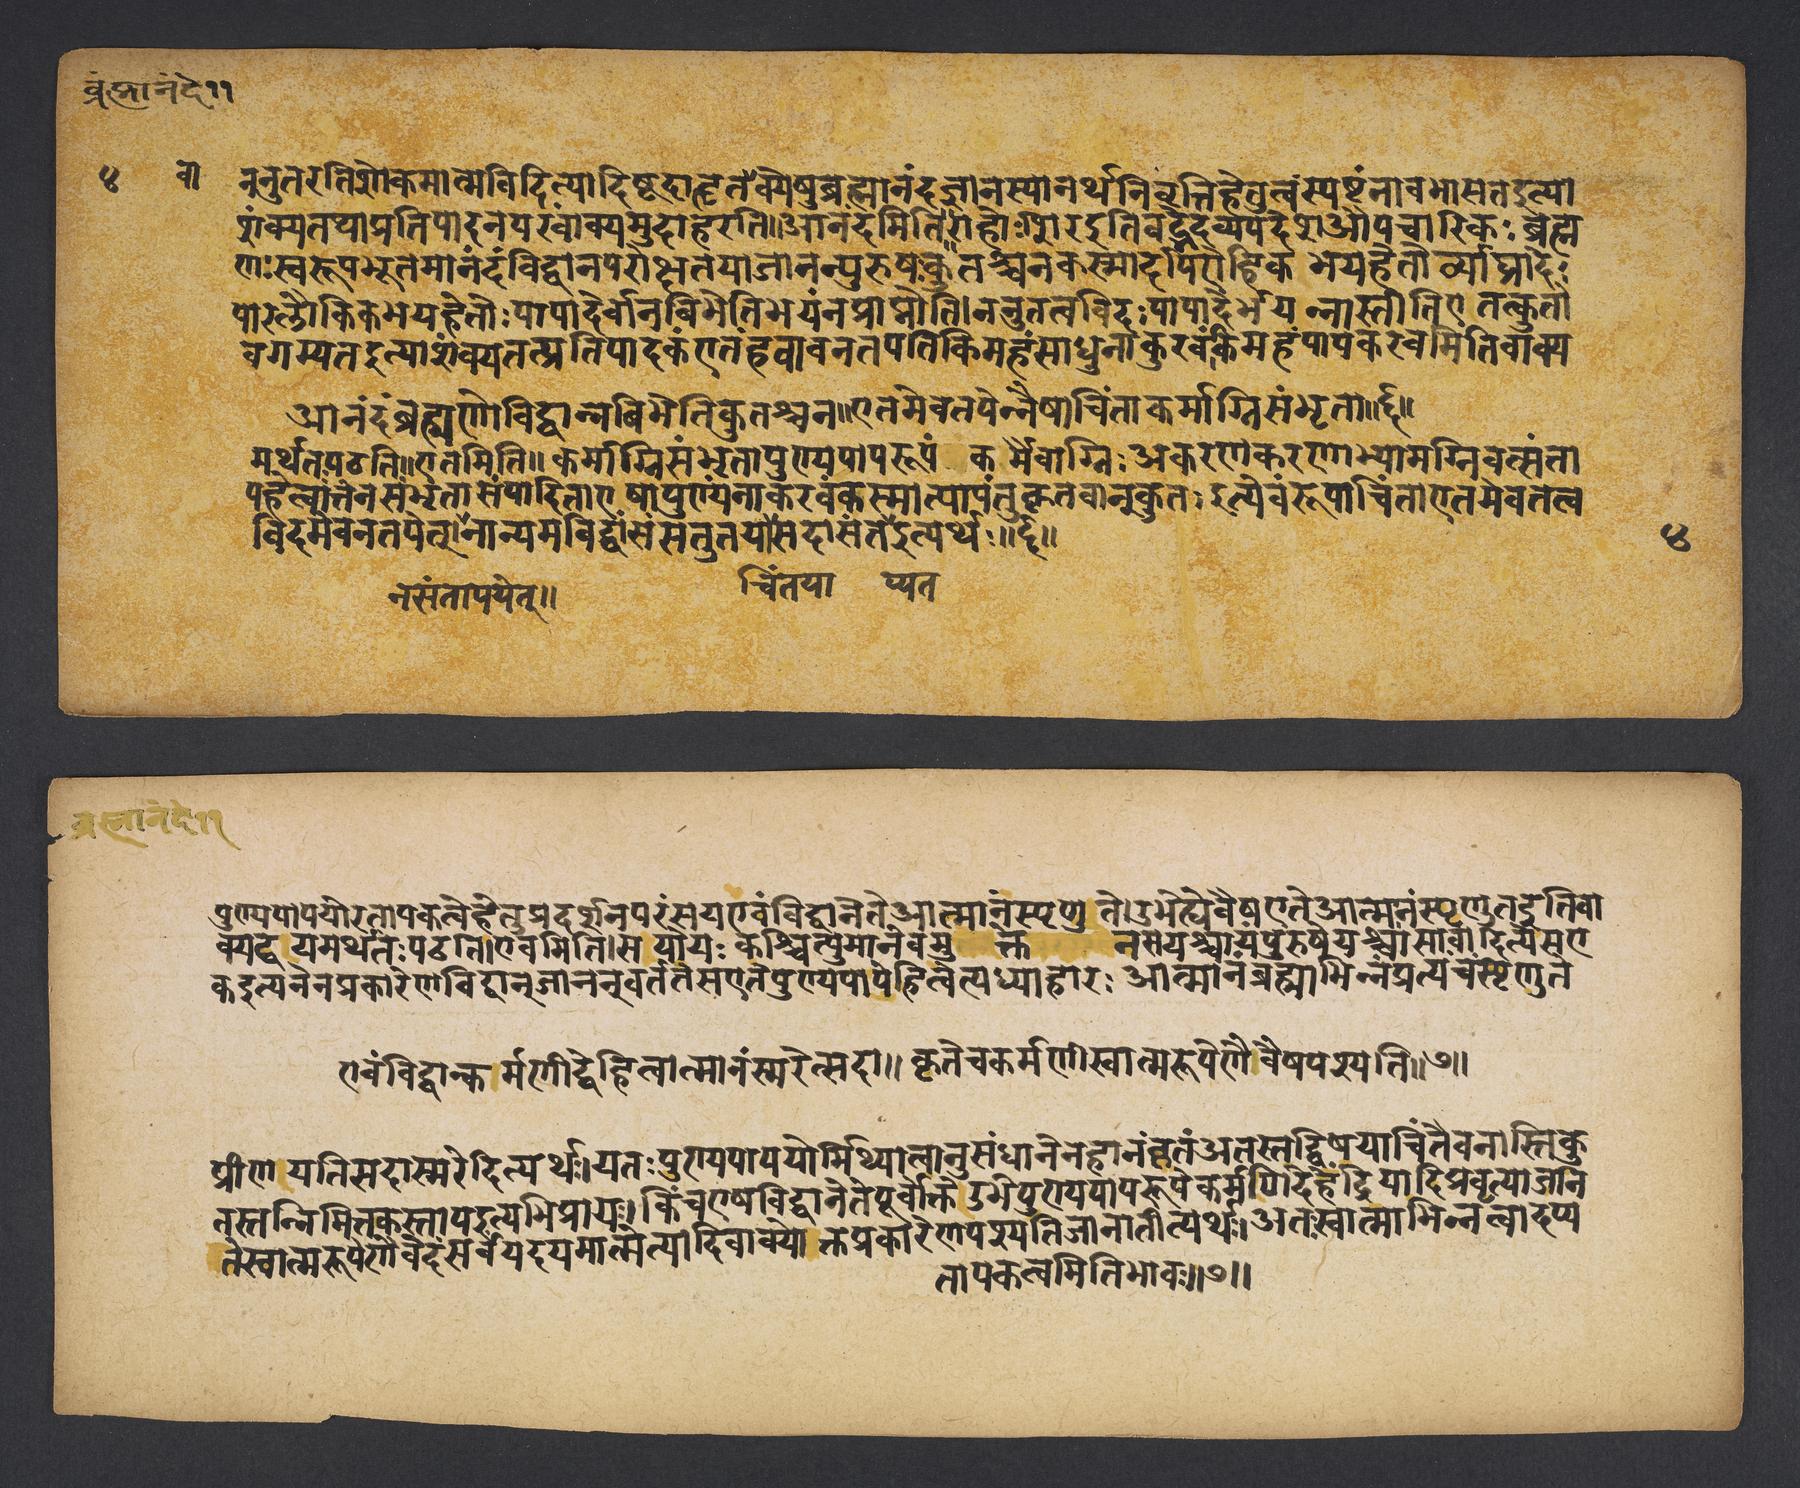 ब्रह्मानंदे ११
४ वा ननुतरतिशोकमात्मविदित्यादिषूदाहृतेवाक्येषुब्रह्मानंदज्ञानस्यानर्थनिवृत्तिहेतुत्वंस्पष्टंनावभासतइत्या
शंक्यतथाप्रतिपादनपरंवाक्यमुदाहरति॥आनंदमिति॥राहोःशिरइतिवद्भेदव्यपदेशऔपचारिकः ब्रह्म
णःस्वरूपभूतमानंदंविद्वानपरोक्षतयाजानन्पुरुषःकुतश्चनकस्मादपिऐहिकभयहेतोर्व्याघ्रादेः
पारलौकिकभयहेतोः पापादेर्वानबिभेतिभयंनप्राप्नोति।ननुतत्वविदः पापादेर्भयन्नास्तीतिएतत्कुतो
वगम्यतइत्याशंक्यतत्प्रतिपादकंएतंहवावनतपतिकिमहंसाधुनाकरवंकिमहंपापंकरवमितिवाक्य
आनंदंब्रह्मणोविद्वान्नबिभेतिकुतश्चन॥एतमेवतपेन्नैषाचिंताकर्माग्निसंभृता॥६॥
मर्थतःपठति॥एतमिति॥कर्माग्निसंभृतापुण्यपापरूपं कर्मैवाग्निः अकरणकरणाभ्यामग्निवत्संता
पहेतुत्वात्तेनसंभृतासंपादिताएषापुण्यंनाकरवंकस्मात्पापंतुकृतवान्कुतः इत्येवंरूपाचिंताएतमेवतत्व
विदमेवनतपेत्।नान्यमविद्वांसंसतुतयासदासंतइत्यर्थः॥६॥
नसंतापयेत्॥ चिंतया प्यत
४
ब्रह्मानंदे ११
पुण्यपापयोरतापकत्वेहेतुप्रदर्शनपरंसयएवंविद्वानेतेआत्मानंस्पृणुते।उभेह्येवैषएतेआत्मानंस्पृणुतइतिवा
क्यद्वयमर्थतः पठति।एवमिति।सयोयः कश्चित्पुमानेवमुक्त नसयश्चायंपुरुषेयश्चासावादित्येसए
कइत्यनेनप्रकारेणविद्वान्जानन्नुवर्ततेसएतेपुण्यपापेहित्वेत्यध्याहारः आत्मानंब्रह्माभिन्नंप्रत्यंचंस्पृणुते
एवंविद्वान्कर्मणीद्वेहित्वात्मानंस्मरेत्सदा॥कृतेचकर्मणीस्वात्मरूपेणैवैषपश्यति॥७॥
प्रीणयतिसदास्मरेदित्यर्थः।यतः पुण्यपापयोर्मिथ्यात्वानुसंधानेनहानंकृतंअतस्तद्विषयाचिंतैवनास्तिकु
तस्तन्निमित्तकस्तापइत्यभिप्रायः।किंचएषविद्वानेतेपूर्वोक्ते उभेपुण्यपापरूपेकर्मणिदेहेंद्रियादिप्रवृत्याजनि
तेस्वात्मरूपेणैवेदंसर्वंयदयमात्मेत्यादिवाक्योक्तप्रकारेणपश्यतिजानातीत्यर्थः।अतःस्वात्माभिन्नत्वादप्य
तापकत्वमितिभावः॥७॥